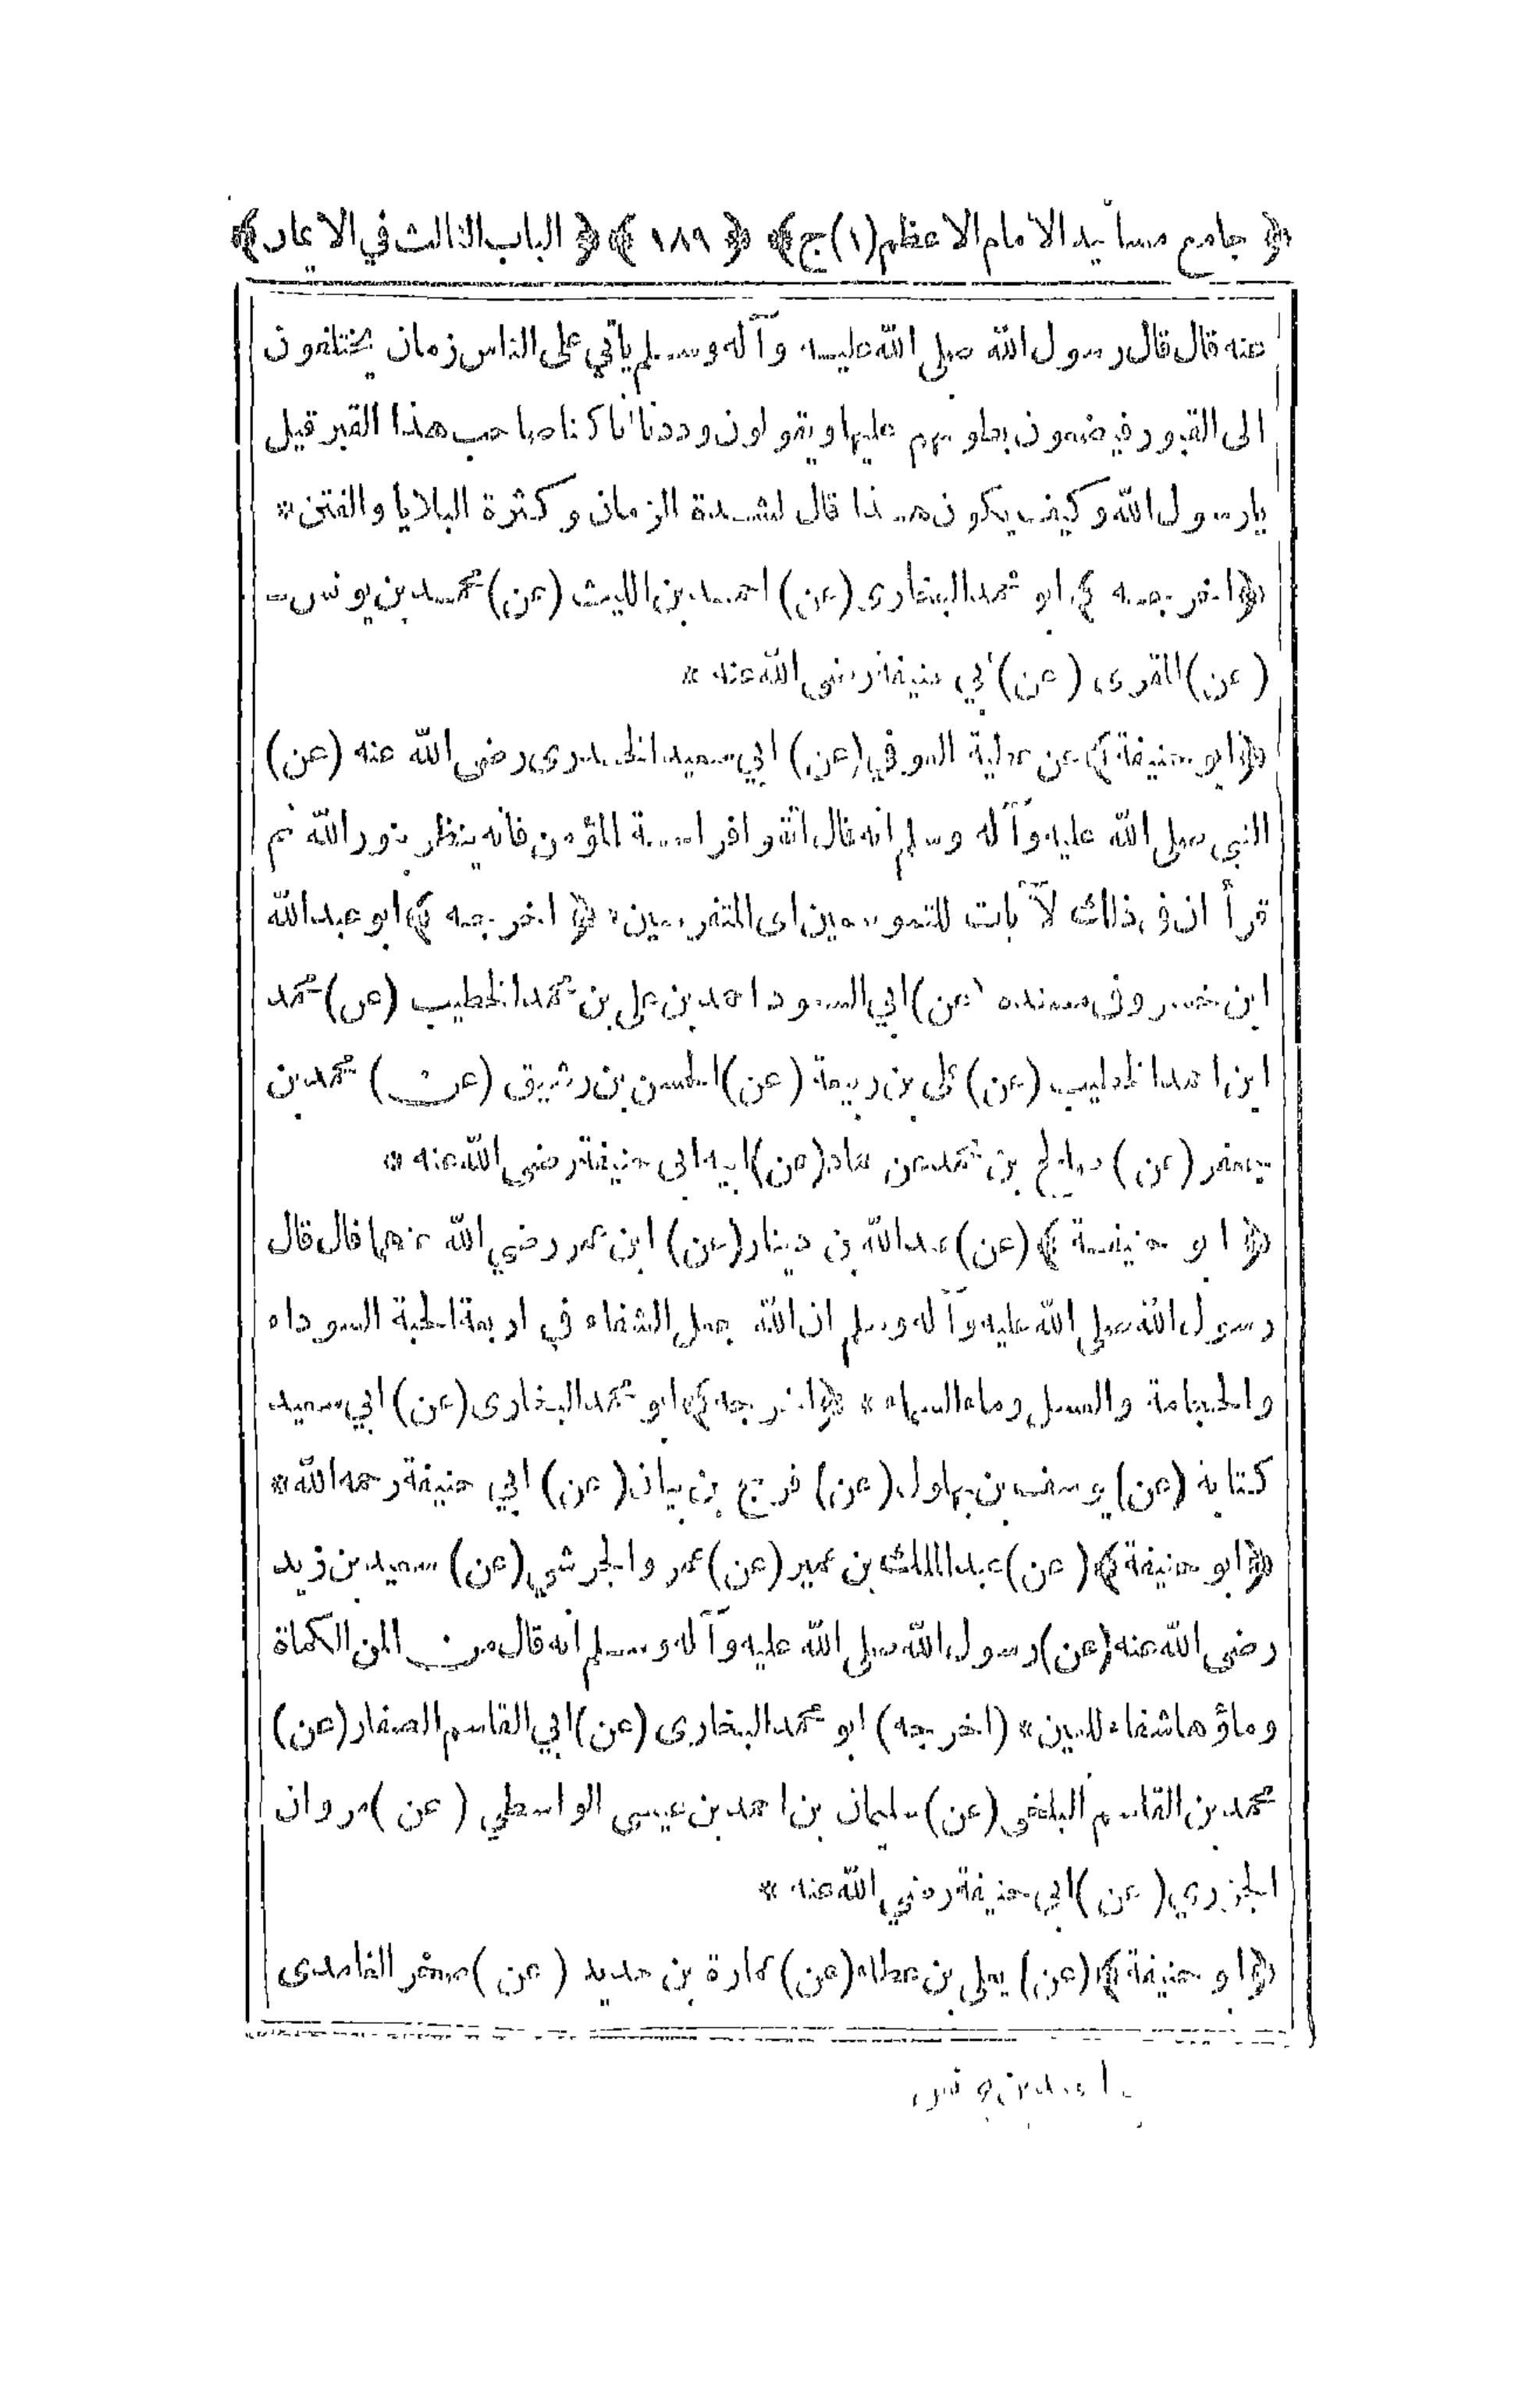 ﴿ جامع مسانيد الامام الاعظم (١) ج ﴾ ﴿ ١٨٩ ﴾ ﴿ الباب الثالث في الايمان ﴾
عنه قال قال رسول الله صلى الله عليه وآله وسلم يأتي على الناس زمان يختلفون
الى القبور فيضعون بطونهم عليها ويقولون وددنا انا كنا صاحب هذا القبر قيل
يارسول الله وكيف يكون هذا قال لشدة الزمان وكثرة البلايا والفتن *
﴿ اخرجه ﴾ ابو محمد البخارى (عن) احمد بن الليث (عن) محمد بن يونس
(عن) المقرى (عن) ابي حنيفة رضى الله عنه *
﴿ ابو حنيفة ﴾ عن عطية العوفي (عن) ابي سعيد الخدرى رضى الله عنه (عن)
النبي صلى الله عليه وآله وسلم انه قال اتقوا فراسة المؤمن فانه ينظر بنور الله ثم
قرأ ان فى ذلك لآيات للمتوسمين اى المتفرسين * ﴿ اخرجه ﴾ ابو عبد الله
ابن خسرو فى مسنده (عن) ابي السعود احمد بن على بن محمد الخطيب (عن) محمد
ابن احمد الخطيب (عن) على بن ربيعة (عن) الحسن بن رشيق (عن) محمد بن
جعفر (عن) صالح بن محمد عن حماد (عن) ابيه ابى حنيفة رضى الله عنه *
﴿ ابو حنيفة ﴾ (عن) عبد الله بن دينار (عن) ابن عمر رضي الله عنهما قال قال
رسول الله صلى الله عليه وآله وسلم ان الله جعل الشفاء في اربعة الحبة السوداء
والحجامة والعسل وماء السماء * ﴿ اخرجه ﴾ ابو محمد البخارى (عن) ابي سعيد
كتابة (عن) يوسف بن بهلول (عن) فرج بن بيان (عن) ابي حنيفة رحمه الله *
﴿ ابو حنيفة ﴾ (عن) عبد الملك بن عمير (عن) عمرو الجرشي (عن) سعيد بن زيد
رضى الله عنه (عن) رسول الله صلى الله عليه وآله وسلم انه قال من المن الكماة
وماؤها شفاء للعين * (اخرجه) ابو محمد البخارى (عن) ابي القاسم الصفار (عن)
محمد بن القاسم البلخى (عن) سليمان بن احمد بن عيسى الواسطي (عن) مروان
الجزري (عن) ابي حنيفة رضي الله عنه *
﴿ ابو حنيفة ﴾ (عن) يعلى بن عطاء (عن) عمارة بن حديد (عن) صخر الغامدى